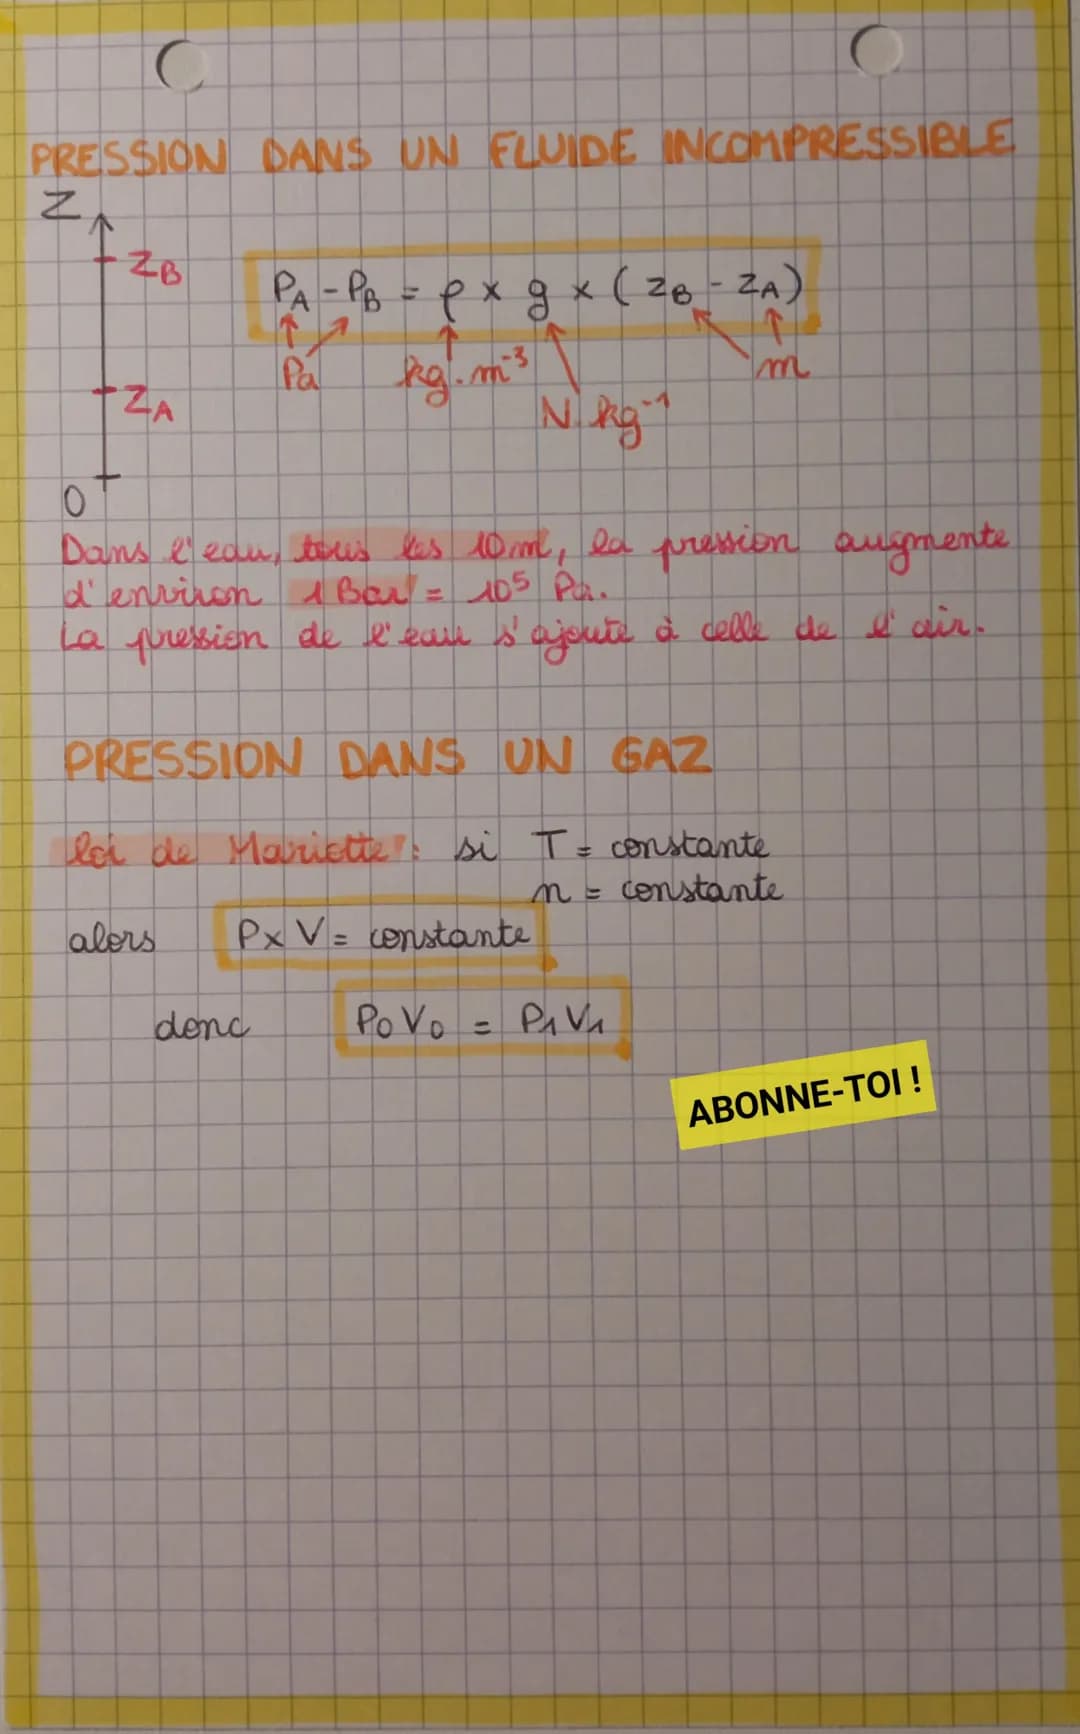 PRESSION DANS UN FLUIDE INCOMPRESSIBLE
Z
ZB
PA - PB = ρ x g x ( ZB - ZA)
Pa kg.m⁻³ m
ZA
N.kg⁻¹
0
Dans l'eau, tous les 10m, la pression augmente
d'environ 1 Bar = 10⁵ Pa.
La pression de l'eau s'ajoute à celle de l'air.
PRESSION DANS UN GAZ
loi de Mariotte : si T = constante
n = constante
alors P x V = constante
donc P0 V0 = P1 V1
ABONNE-TOI !